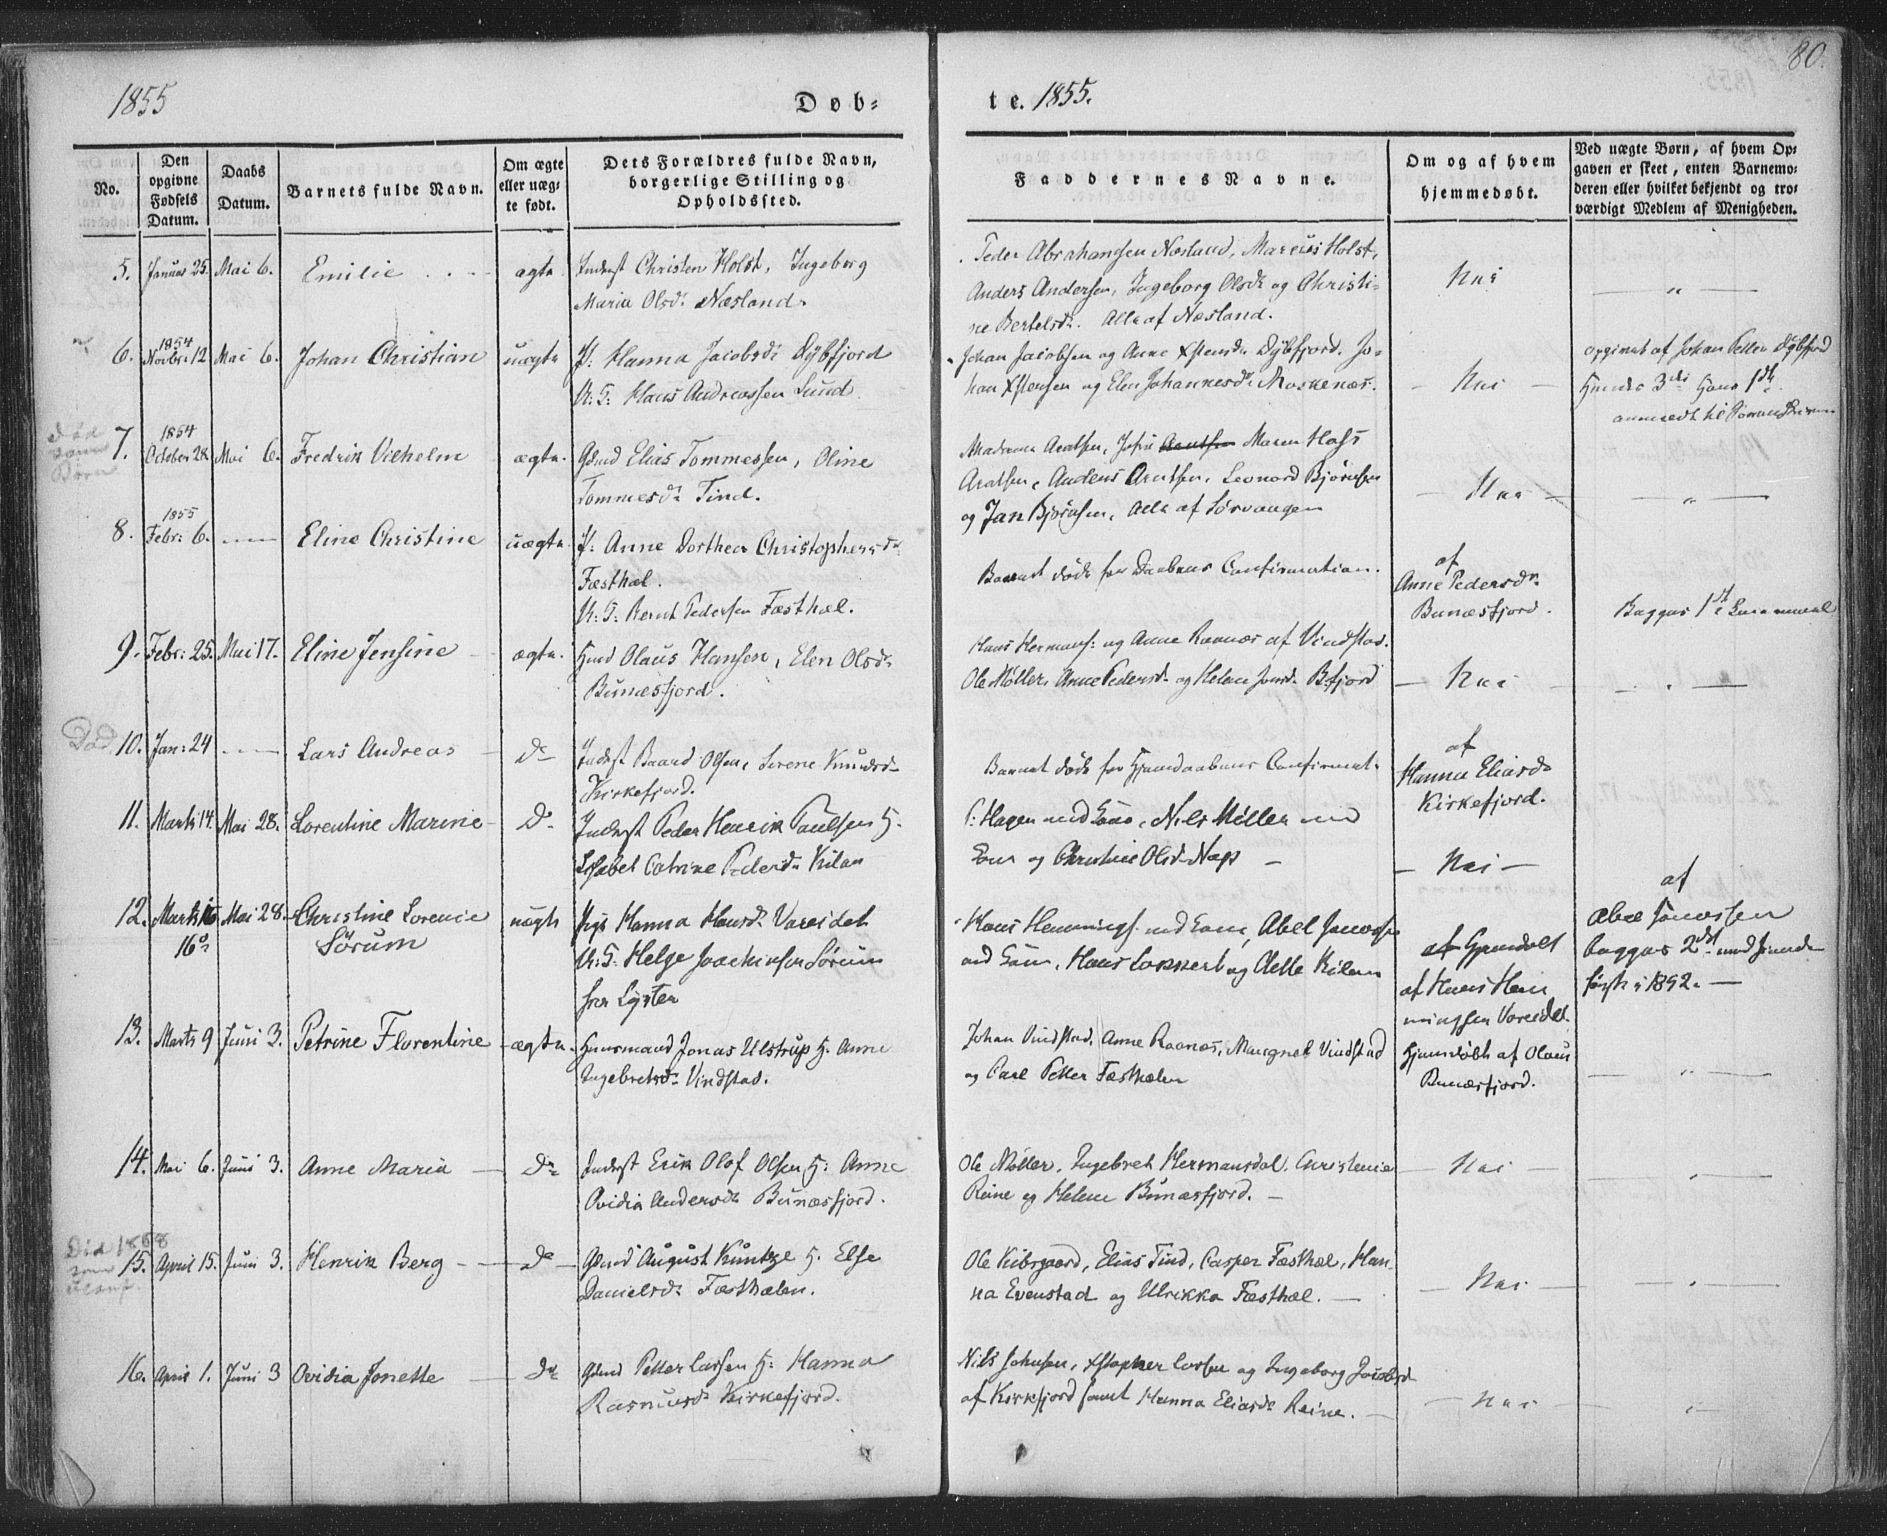 1855
Døb-
te. 1855.
80.
No.
Den opgivne Fødsels Datum.
Daabs Datum.
Barnets fulde Navn.
Om ægte eller uægte født.
Dets Forældres fulde Navn, borgerlige Stilling og Opholdssted.
Faddernes Navne.
Om og af hvem hjemmedøbt.
Ved uægte Børn, af hvem Opgaven er skeet, enten Barnemoderen eller hvilket bekjendt og troværdigt Medlem af Menigheden.
5. Januar 25. Mai 6. Emilie ægte Inderst Christen Holst, Ingeborg
Maria Olsdr Næsland.
Peder Abrahamsen Næsland, Marcus Holst,
Anders Andersen, Ingeborg Olsdr og Christi-
ne Bertelsdr. Alle af Næsland.
Nei
6. 1854 Novbr: 12 Mai 6. Johan Christian uægte P: Hanna Jacobsdr Dybfjord
U: F: Hans Andreassen Lund
Johan Jacobsen og Anne Xstensdr Dybfjord. Jo-
han Xstensen og Elen Johannesdr Moskenæs.
Nei
opgivet af Johan Petter Dybfjord
Hendes 3die Hans 1ste
Død som Børn
7. 1854 October 28 Mai 6. Fredrik Vilhelm ægte Gdmd Elias Tommessen, Oline
Tommesdr Tind.
Madame Arntsen, Jfru Arntsen Maren Hass
Arntsen, Anders Arntsen, Leonard Bjørnsen
og Jan Bjørnsen, Alle af Sørvaagen
Nei
8. 1855 Febr: 6. Eline Christine uægte P: Anne Dorthea Christophersdr
Fæsthæl.
U: F: Bernt Pedersen Fæsthæl.
Barnet døde før Daabens Confirmation.
af
Anne Pedersdr
Bunæsfjord.
Begges 1ste Leiermaal
9. Febr: 25. Mai 17. Eline Jensine ægte Hmd Olaus Hansen, Elen Olsdr
Bunæsfjord.
Hans Hermans: og Anne Ravnæs af Vindstad.
Ole Møller, Anne Pedersdr og Helene Jonsdr Bfjord
Nei
Død
10. Jan: 24 Lars Andreas Do Inderst Baard Olsen, Serene Knudsdr
Kirkefjord.
Barnet døde før Hjemdaabens Confirmat.
af
Hanna Eliasdr
Kirkefjord.
11. Marts 14. Mai 28. Lorentine Marine Do Inderst Peder Henrik Paulsen H.
Lisabet Catrine Pedersdr Kilan
P: Hagen med Kone, Nils Møller med
Kone og Christine Olsdr Næss
Nei
12. Marts 16 Mai 28. Christine Lorence uægte Pige Hanna Hansdr Vareidet
16de Sørum U: F: Helge Joachimsen Sørum
fra Lyster
Hans Hemmings: med Kone, Abel Jonassen
med Kone, Hans Lokkert og Aette Kilan
af Hjemdøbt
af Hans Hem
mingsen Vareidet
af
Abel Jonassen
Begges 2det med hinanden
første i 1852.
13. Marts 9 Juni 3. Petrine Florentine ægte Huusmand Jonas Ulstrup H. Anne
Ingebretsdr Vindstad.
Johan Vindstad, Anne Ravnæs, Margret Vindstad
og Carl Petter Fæsthælen
Hjemdøbt af Olaus
Bunæsfjord.
14. Mai 6. Juni 3. Anne Maria Do Inderst Erik Olof Olsen H: Anne
Ovidia Andersdr Bunæsfjord.
Ole Møller, Ingebret Hermansdal, Christense
Reine og Helene Bunæsfjord.
Nei
Død 1868
15. April 15. Juni 3. Henrik Berg Do Gdmd August Kuntze H. Else
Danielsdr Fæsthælen.
Ole Kibsgaard, Elias Tind, Casper Fæsthæl, Han-
na Evenstad og Ulrikka Fæsthæl.
Nei
16. April 1. Juni 3 Ovidia Jonette Do Gdmd Petter Larsen H: Hanna
Rasmusdr Kirkefjord.
Nils Johnsen, Xstopher Larsen og Ingeborg Jacobsdr
af Kirkfjord samt Hanna Eliasdr Reine.
Nei